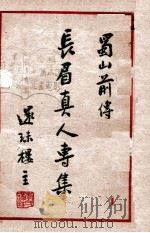 蜀山前傳
長眉真人專集
還珠樓主